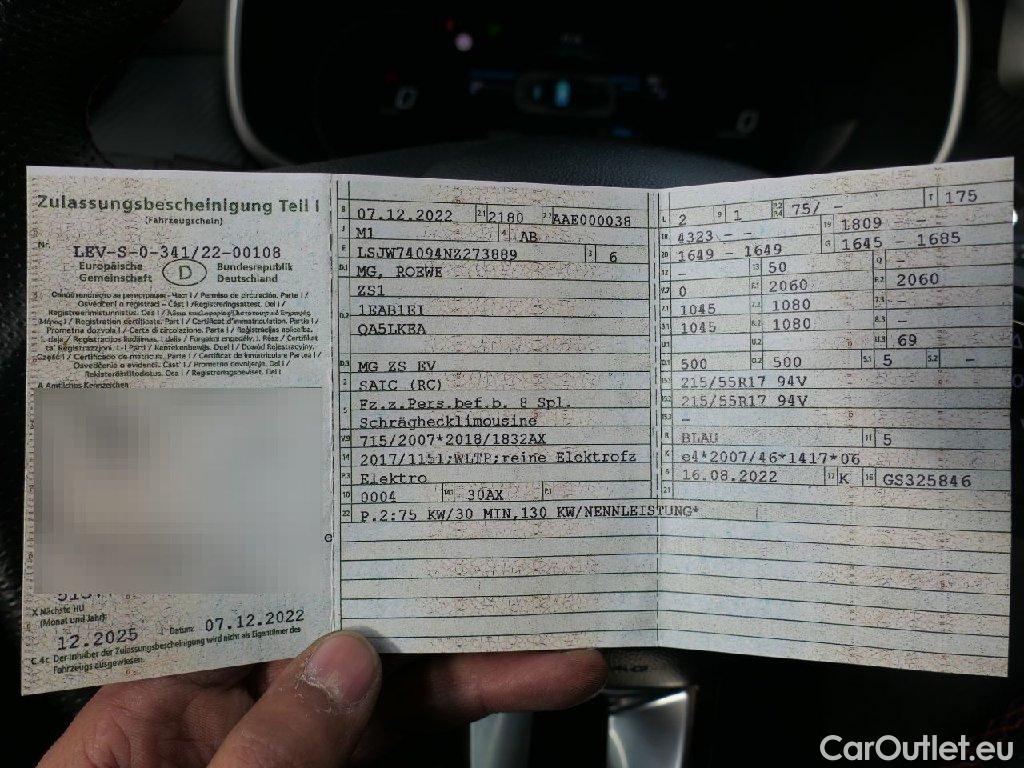 Zulassungsbescheinigung Teil I
(Fahrzeugschein)
Nr.
LEV-S-0-341/22-00108
Europäische Gemeinschaft
D
Bundesrepublik Deutschland
A Amtliches Kennzeichen
X Nächste HU
(Monat und Jahr)
12.2025
Datum: 07.12.2022
C.4c Der Inhaber der Zulassungsbescheinigung wird nicht als Eigentümer des
Fahrzeugs ausgewiesen.
B 07.12.2022 2.1 2180 2.2 AAE000038
J M1 4 AB
E LSJW74094NZ273889 3 6
D.1 MG, ROEWE
ZS1
D.2 1EAB1E1
QA5LKEA
D.3 MG ZS EV
2 SAIC (RC)
5 Fz.z.Pers.bef.b. 8 Spl.
Schräghecklimousine
V.9 715/2007*2018/1832AX
14 2017/1151;WLTP;reine Elektrofz
P.3 Elektro
10 0004 14.1 30AX P.1
22 P.2:75 KW/30 MIN,130 KW/NENNLEISTUNG*
L 2 9 1 P.2 P.4 75/ - T 175
18 4323 - - 19 1809 - -
20 1649 - 1649 G 1645 - 1685
12 - 13 50 Q -
V.7 0 F.1 2060 F.2 2060
7.1 1045 7.2 1080 7.3 -
8.1 1045 8.2 1080 8.3 -
U.1 U.2 U.3 69
O.1 500 O.2 500 S.1 5 S.2 -
15.1 215/55R17 94V
15.2 215/55R17 94V
15.3 -
R BLAU 11 5
K e4*2007/46*1417*06
6 16.08.2022 17 K 16 GS325846
21
0
0
CarOutlet.eu